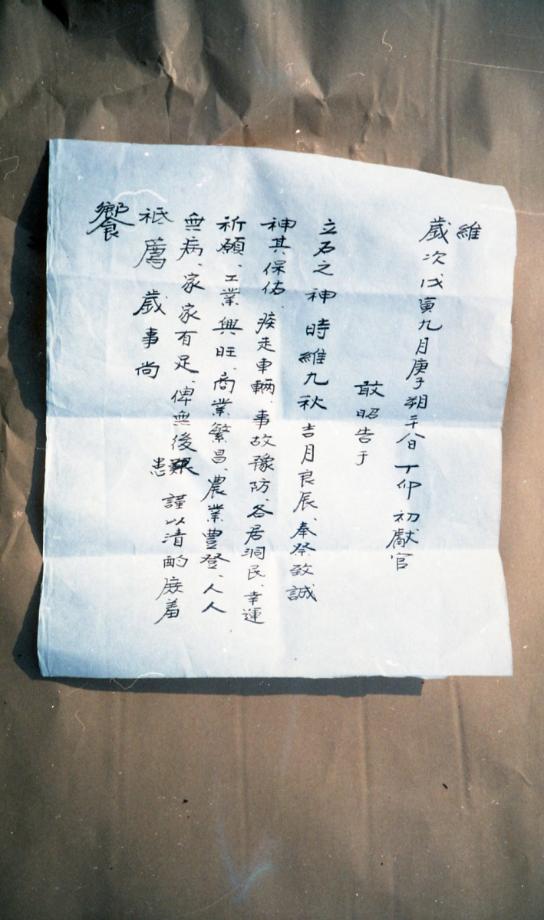 維
歲次戊寅九月庚子朔二十八日丁卯 初獻官
敢昭告于
立石之神 時維九秋 吉月良辰、奉祭致誠
神其保佑 疾走車輛、事故豫防、各居洞民、幸運
祈願、工業興旺、商業繁昌、農業豊登、人人
無病、家家有足、俾無後艱 謹以清酌庶羞
患
祗薦歲事尚
饗